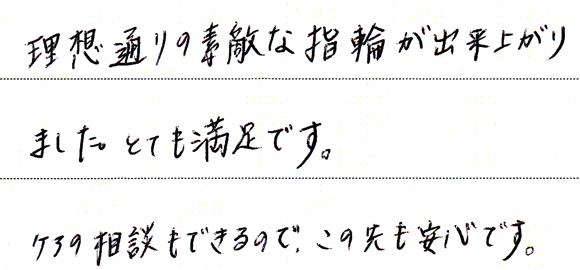 理想通りの素敵な指輪が出来上がり
ました。とても満足です。
ケアの相談もできるので、この先も安心です。